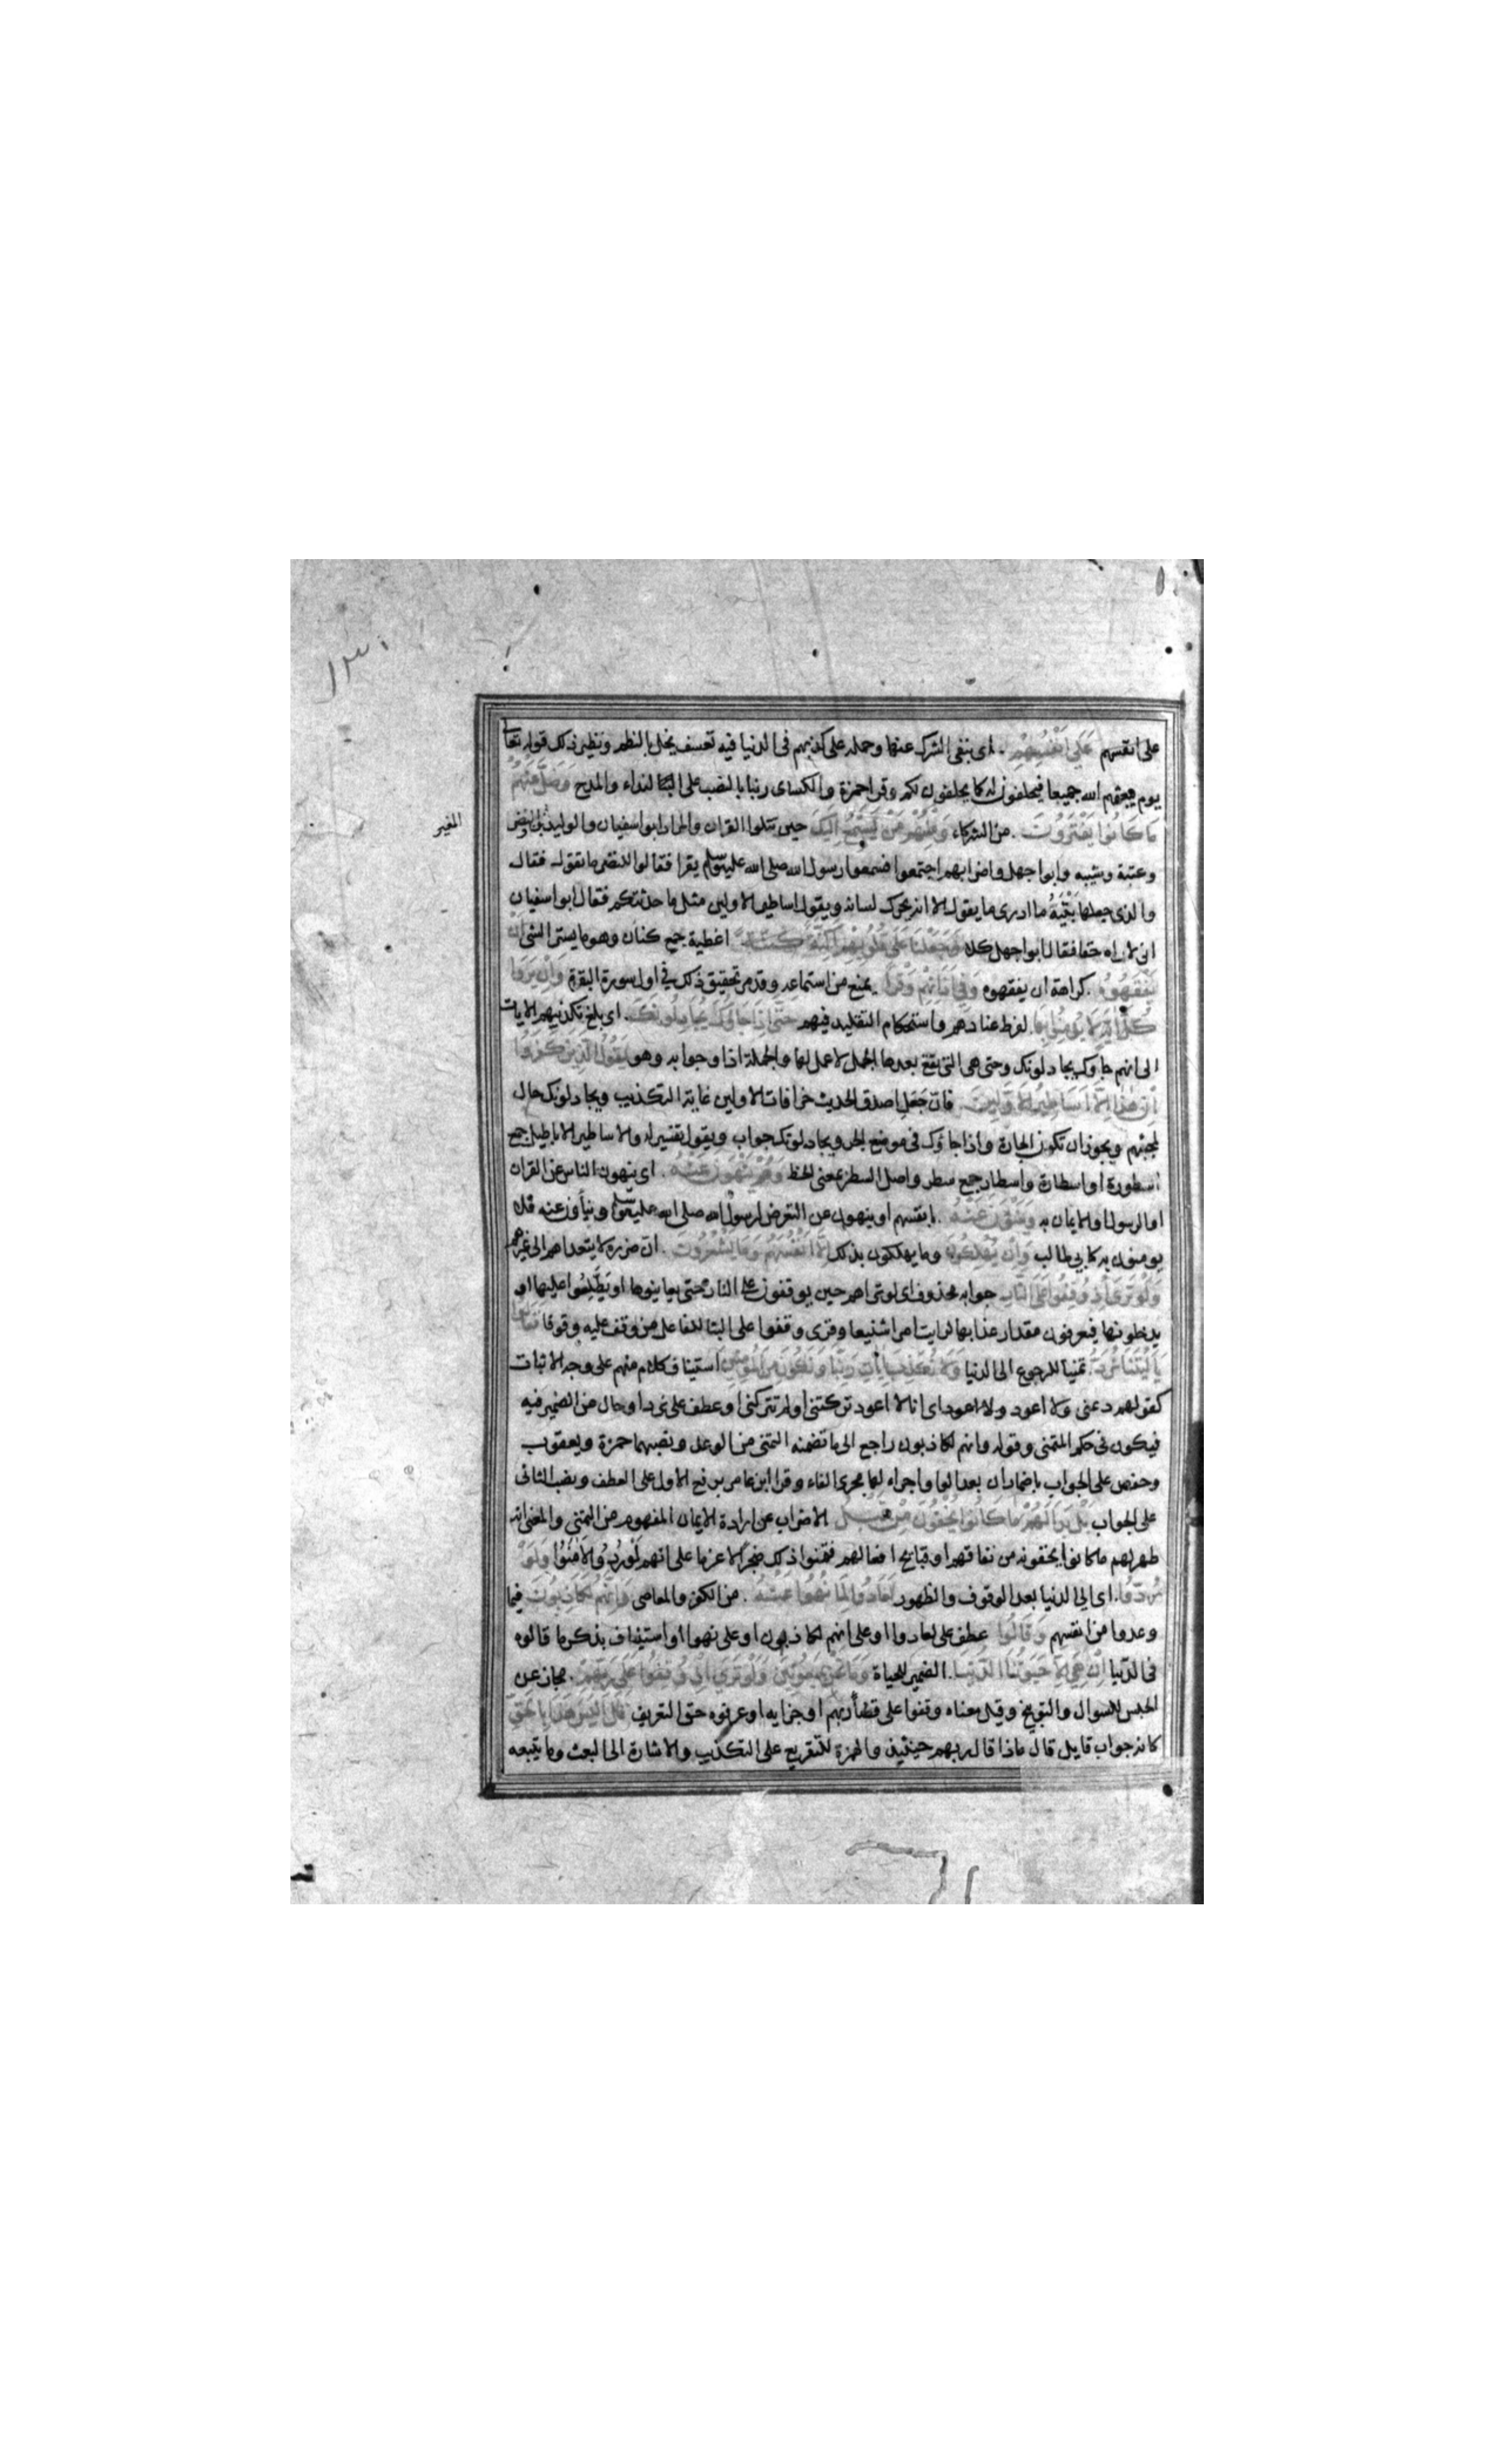 ١٣٠
على انفسهم عَلَى اَنْفُسِهِمْ . اى بنفى الشرك عنها وحمله على كذبهم فى الدنيا فيه تعسف يخل بالنظم ونظير ذلك قوله تعا
يوم يبعثهم الله جميعا فيحلفون له كما يحلفون لكم وقرا حمزة والكساى ربنا بالنصب على النداء والمدح وَضَلَّ عَنْهُمْ
مَا كَانُوا يَفْتَرُونَ . من الشركاء وَمِنْهُمْ مَنْ يَسْتَمِعُ اِلَيْكَ حين تتلوا القران والمراد ابوا سفيان والوليد والنضر
المغير
وعتبة وشيبه وابوا جهل واضرابهم اجتمعوا فسمعوا رسول الله صلى الله عليه وسلم يقرا فقالوا للنضر ما تقول فقال
والذى جعلها بَيْتَهُ ما ادرى ما يقول الا انه يحرك لسانه ويقول اساطير الاولين مثل ما حدثتكم فقال ابوا سفيان
انى لاراه حقا فقال ابوا جهل كلا وَجَعَلْنَا عَلَى قُلُوبِهِمْ اَكِنَّةً . اغطية جمع كنان وهو ما يستر الشى اَنْ
يَفْقَهُوهُ . كراهة ان يفقهوه وَفِى اٰذَانِهِمْ وَقْرًا . يمنع من استماعه وقد مر تحقيق ذلك فى اول سورة البقرة وَاِنْ يَرَوْا
كُلَّ اٰيَةٍ لَا يُؤْمِنُوا بِهَا . لفرط عنادهم واستحكام التقليد فيهم حَتَّى اِذَا جَاؤُكَ يُجَادِلُونَكَ . اى بلغ تكذيبهم الايات
الى انهم جاؤك يجادلونك وحتى هى التى تقع بعدها الجمل لا عمل لها والجملة اذا وجوابه وهو يَقُولُ الَّذِينَ كَفَرُوا
اِنْ هٰذَا اِلَّا اَسَاطِيرُ الْاَوَّلِينَ . فان جَعَل اصدق الحديث خرافات الاولين غاية التكذيب ويجادلونك حال
لمجيئهم ويجوز ان تكون الجارة واذا جاؤك فى موضع الجر ويجادلونك جواب ويقول تفسير له والاساطير الاباطيل جمع
اسطورة او اسطارة واسطار جمع سطر واصل السطر بمعنى الخط وَهُمْ يَنْهَوْنَ عَنْهُ . اى ينهون الناس عن القران
او الرسول والايمان به وَيَنْئَوْنَ عَنْهُ . بانفسهم او ينهون عن التعرض لرسول الله صلى الله عليه وسلم وينأون عنه فلا
يومنون به كابى طالب وَاِنْ يُهْلِكُونَ وما يهلكون بذلك اِلَّا اَنْفُسَهُمْ وَمَا يَشْعُرُونَ . ان ضرره لا يتعداهم الى غيرهم
وَلَوْ تَرَى اِذْ وُقِفُوا عَلَى النَّارِ جوابه محذوف اى لو تراهم حين يوقفون على النار حتى يعاينوها او يَطَّلِعُوا عليها او
يدخلونها فيعرفون مقدار عذابها لرايت امرا شنيعا وقرى وقفوا على البنا للفاعل من وقف عليه وقوفا فَقَالُوا
يَا لَيْتَنَا نُرَدُّ . تمنيا للرجوع الى الدنيا وَلَا نُكَذِّبَ بِاٰيَاتِ رَبِّنَا وَنَكُونَ مِنَ الْمُؤْمِنِينَ استيناف كلام منهم على وجه الاثبات
كقولهم دعنى ولا اعود ولا اعود اى انا لا اعود تركتنى او لم تتركنى او عطف على نرد او حال من الضمير فيه
فيكون فى حكم المتمنى وقوله وانهم لكاذبون راجع الى ما تضمنه التمنى من الوعد ونصبهما حمزة ويعقوب
وحفص على الجواب باضمار ان بعد الواو اجراء لها مجرى الفاء وقرا ابن عامر برفع الاول على العطف ونصب الثانى
على الجواب بَلْ بَدَا لَهُمْ مَا كَانُوا يُخْفُونَ مِنْ قَبْلُ الاضراب عن ارادة الايمان المفهوم من التمنى والمعنى انه
ظهر لهم ما كانوا يخفونه من نفاقهم او قبايح افعالهم فتمنوا ذلك ضجرا لا عزما على انهم لَوْ رُدُّوا لَاٰمَنُوا وَلَوْ
رُدُّوا . اى الى الدنيا بعد الوقوف والظهور لَعَادُوا لِمَا نُهُوا عَنْهُ . من الكفر والمعاصى وَاِنَّهُمْ لَكَاذِبُونَ فيما
وعدوا من انفسهم وَقَالُوا عطف على لعادوا او على انهم لكاذبون او على نهوا او استيناف بذكر ما قالوه
فى الدنيا اِنْ هِىَ اِلَّا حَيٰوتُنَا الدُّنْيَا . الضمير للحياة وَمَا نَحْنُ بِمَبْعُوثِينَ وَلَوْ تَرَى اِذْ وُقِفُوا عَلَى رَبِّهِمْ . مجاز عن
الحبس للسوال والتوبيخ وقيل معناه وقفوا على قضاء ربهم او جزايه او عرفوه حق التعريف قَالَ اَلَيْسَ هٰذَا بِالْحَقِّ
كانه جواب قايل قال ماذا قال ربهم حينئيذ والهمزة للتقريع على التكذيب والاشارة الى البعث وما يتبعه